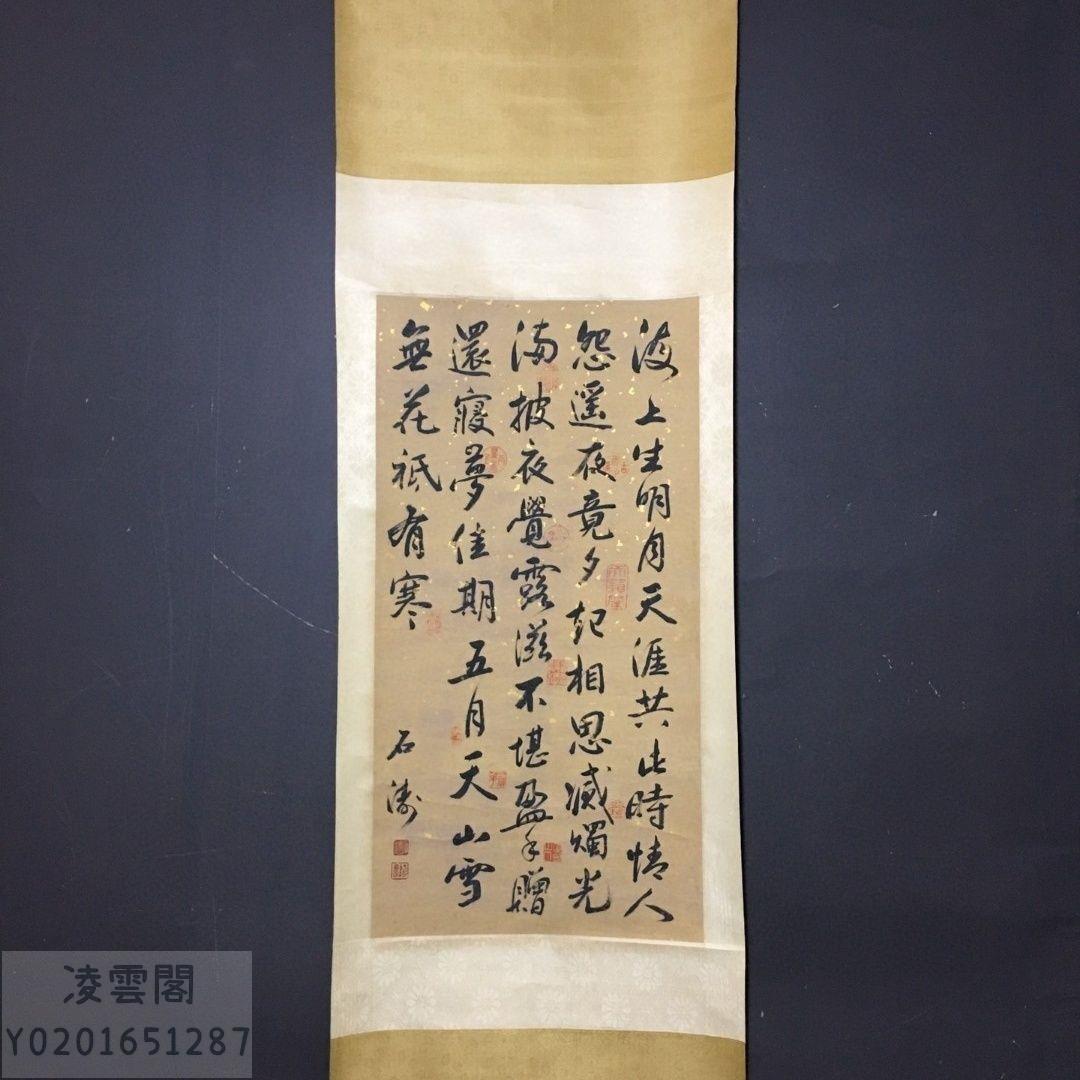 海上生明月天涯共此時情人
怨遥夜竟夕起相思滅燭光
滿披夜覺露滋不堪盈手贈
還寢夢佳期五月天山雪
無花祇有寒
石濤
凌雲閣
Y0201651287